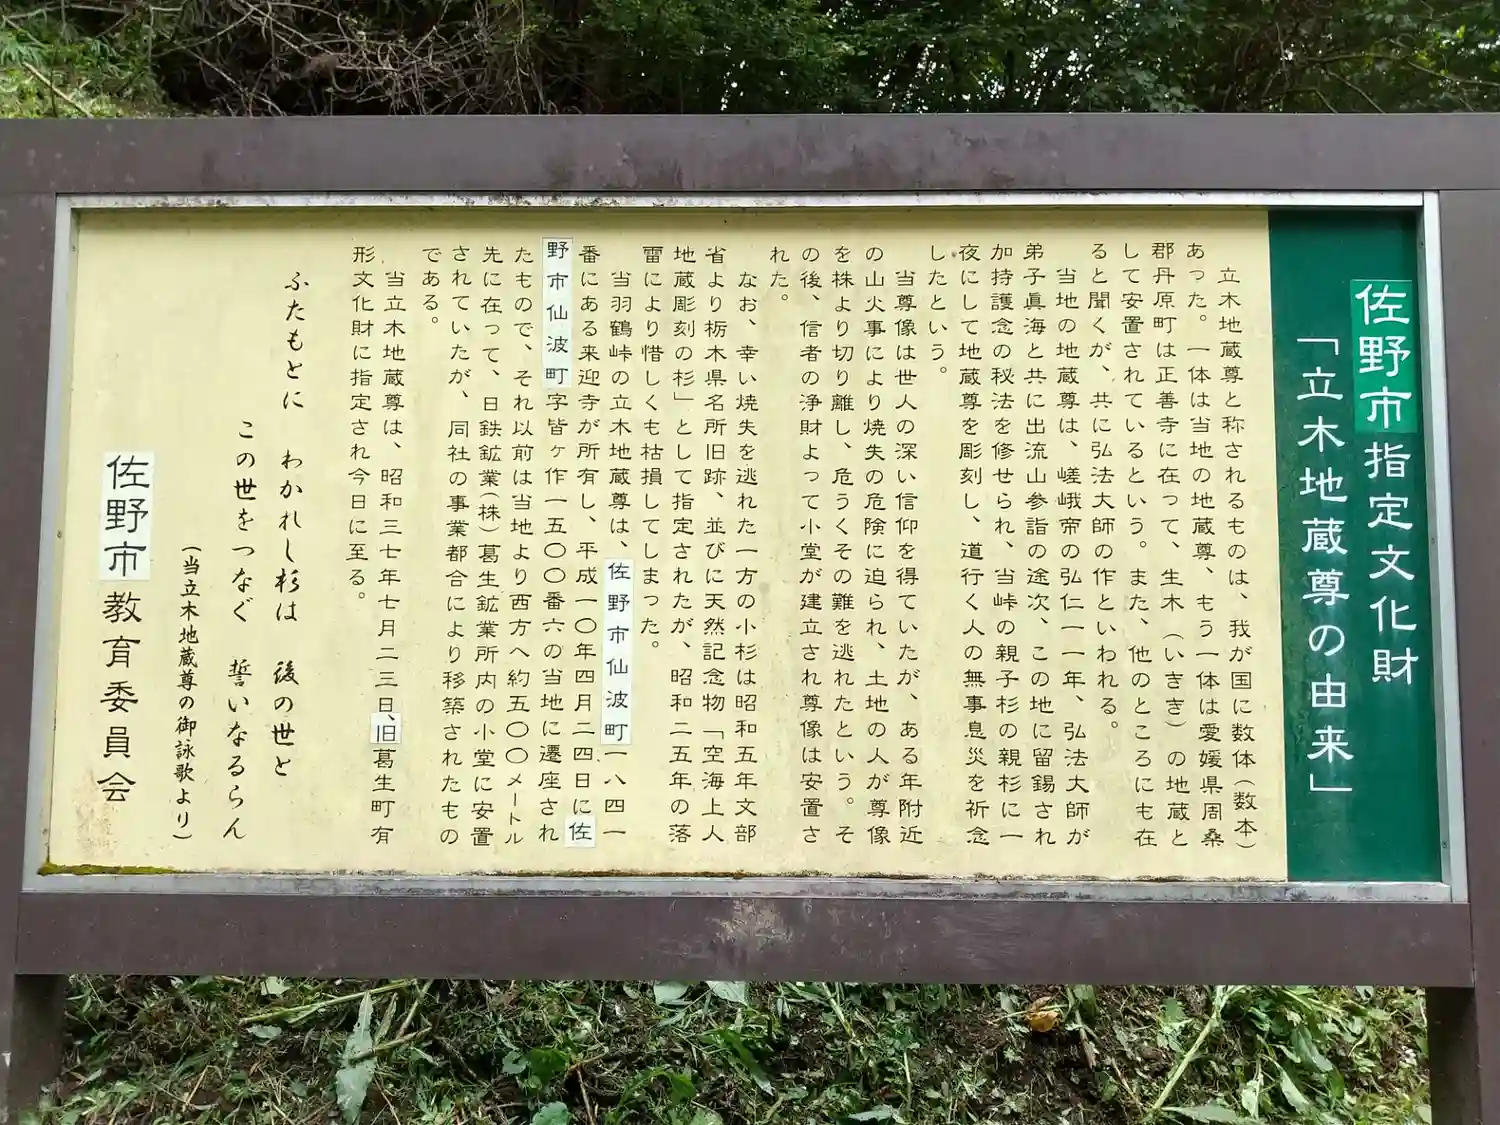 佐野市指定文化財
「立木地蔵尊の由来」
立木地蔵尊と称されるものは、我が国に数体(数本)
あった。一体は当地の地蔵尊、もう一体は愛媛県周桑
郡丹原町は正善寺に在って、生木(いきき)の地蔵と
して安置されているという。また、他のところにも在
ると聞くが、共に弘法大師の作といわれる。
当地の地蔵尊は、嵯峨帝の弘仁一一年、弘法大師が
弟子眞海と共に出流山参詣の途次、この地に留錫され
加持護念の秘法を修せられ、当峠の親子杉の親杉に一
夜にして地蔵尊を彫刻し、道行く人の無事息災を祈念
したという。
当尊像は世人の深い信仰を得ていたが、ある年附近
の山火事により焼失の危険に迫られ、土地の人が尊像
を株より切り離し、危うくその難を逃れたという。そ
の後、信者の浄財よって小堂が建立され尊像は安置さ
れた。
なお、幸い焼失を逃れた一方の小杉は昭和五年文部
省より栃木県名所旧跡、並びに天然記念物「空海上人
地蔵彫刻の杉」として指定されたが、昭和二五年の落
雷により惜しくも枯損してしまった。
当羽鶴峠の立木地蔵尊は、佐野市仙波町一八四一
番にある来迎寺が所有し、平成一〇年四月二四日に佐
野市仙波町字皆ヶ作一五〇〇番六の当地に遷座され
たもので、それ以前は当地より西方へ約五〇〇メートル
先に在って、日鉄鉱業(株)葛生鉱業所内の小堂に安置
されていたが、同社の事業都合により移築されたもの
である。
当立木地蔵尊は、昭和三七年七月二三日、旧葛生町有
形文化財に指定され今日に至る。
ふたもとに わかれし杉は 後の世と
この世をつなぐ 誓いなるらん
(当立木地蔵尊の御詠歌より)
佐野市教育委員会